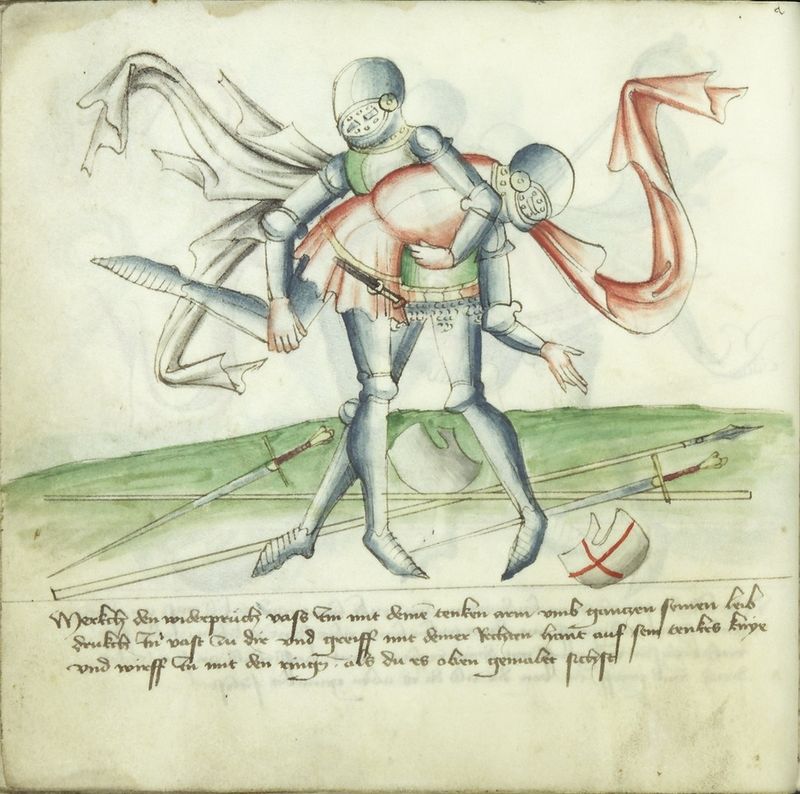 2
Merckh den widerpruch vass Im mit deinē tenken arm vmb gantzen seinen leib
drukch In vast zu dir vnd greiff mit deiner Rechten hant auf sein tenkes knye
vnd wirff In mit den ringn̄ . als du es oben gemalet sichst